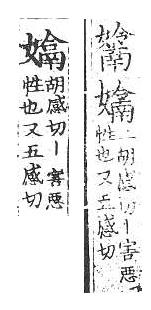 胡感切丨害惡
性也又五感切
胡感切丨害惡
性也又五感切